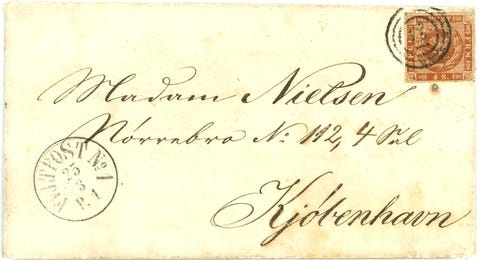 4 S.
Madam Nielsen
Nörrebro No: 112, 4 Sal
Kjöbenhavn
FODPOST No 1
25
3
P. 1